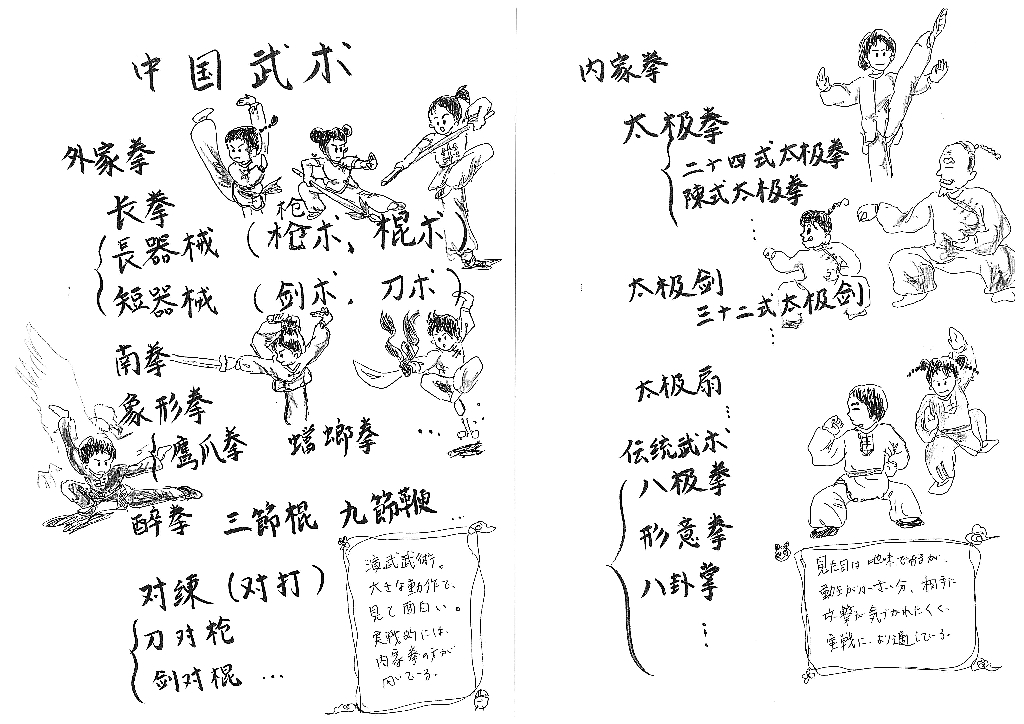 中国武术
外家拳
长拳
長器械 (枪术、棍术)
枪
短器械 (剑术．刀术)
南拳
象形拳
鹰爪拳 蟷螂拳 …
酔拳 三節棍 九節鞭 …
对練 (对打)
刀对枪
剑对棍 …
演武武術。
大きな動作で、
見て面白い。
実戦的には、
内家拳の方が
向いている。
内家拳
太极拳
二十四式太极拳
陳式太极拳
⋮
太极剑
三十二式太极剑
⋮
太极扇
⋮
伝統武术
八极拳
形意拳
八卦掌
⋮
見た目は地味であるが、
動きが小さい分、相手に
攻撃が気づかれにくく、
実戦により適している。